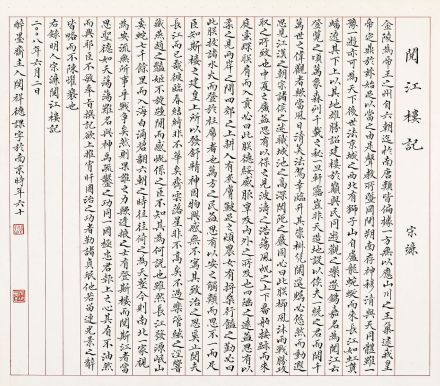 閱江樓記
宋濂
金陵為帝王之州自六朝迄於南唐類皆偏據一方無以應山川之王氣逮我皇
帝定鼎於茲始足以當之由是聲教所暨罔間朔南存神穆清與天同體雖一
豫一遊亦可為天下後世法京城之西北有獅子山自盧龍蜿蜒而來長江如虹貫
蟠遶其下上以其地雄勝詔建樓於巔與民同遊觀之樂遂錫嘉名為閱江云
登覽之頃萬象森列千載之秘一旦軒露豈非天造地設以俟大一統之君而開千
萬世之偉觀者歟當風日清美法駕幸臨升其崇椒憑闌遙矚必悠然而動遐
思見江漢之朝宗諸侯之述職城池之高深關阨之嚴固必曰此朕櫛風沐雨戰勝攻
取之所致也中夏之廣益思有以保之見波濤之浩蕩風帆之上下番舶接跡而來
庭蠻琛聯肩而入貢必曰此朕德綏威服覃及內外之所及也四陲之遠益思有以
柔之見兩岸之間四郊之上耕人有炙膚皸足之煩農女有捋桑行饁之勤必曰
此朕拔諸水火而登於衽席者也萬方之民益思有以安之觸類而思不一而足
臣知斯樓之建皇上所以發舒精神因物興感無不寓其致治之思奚止閱夫
長江而已哉彼臨春結綺非不華矣齊雲落星非不高矣不過樂管絃之淫響
藏燕趙之豔姬不旋踵間而感慨係之臣不知其為何說也雖然長江發源岷山
委蛇七千餘里而入海白湧碧翻六朝之時往往倚之為天塹今則南北一家視
為安流無所事乎戰爭矣然則果誰之力歟逢掖之士有登斯樓而閱斯江者當
思聖德如天蕩蕩難名與神禹疏鑿之功同一罔極忠君報上之心其有不油然
而興耶臣不敏奉旨撰記欲上推宵旰圖治之功者勒諸貞珉他若留連光景之辭
皆略而不陳懼褻也
右錄明人宋濂閱江樓記
二〇〇八年六月二日
醉墨齋主人閔祥德課字於南京時年六十